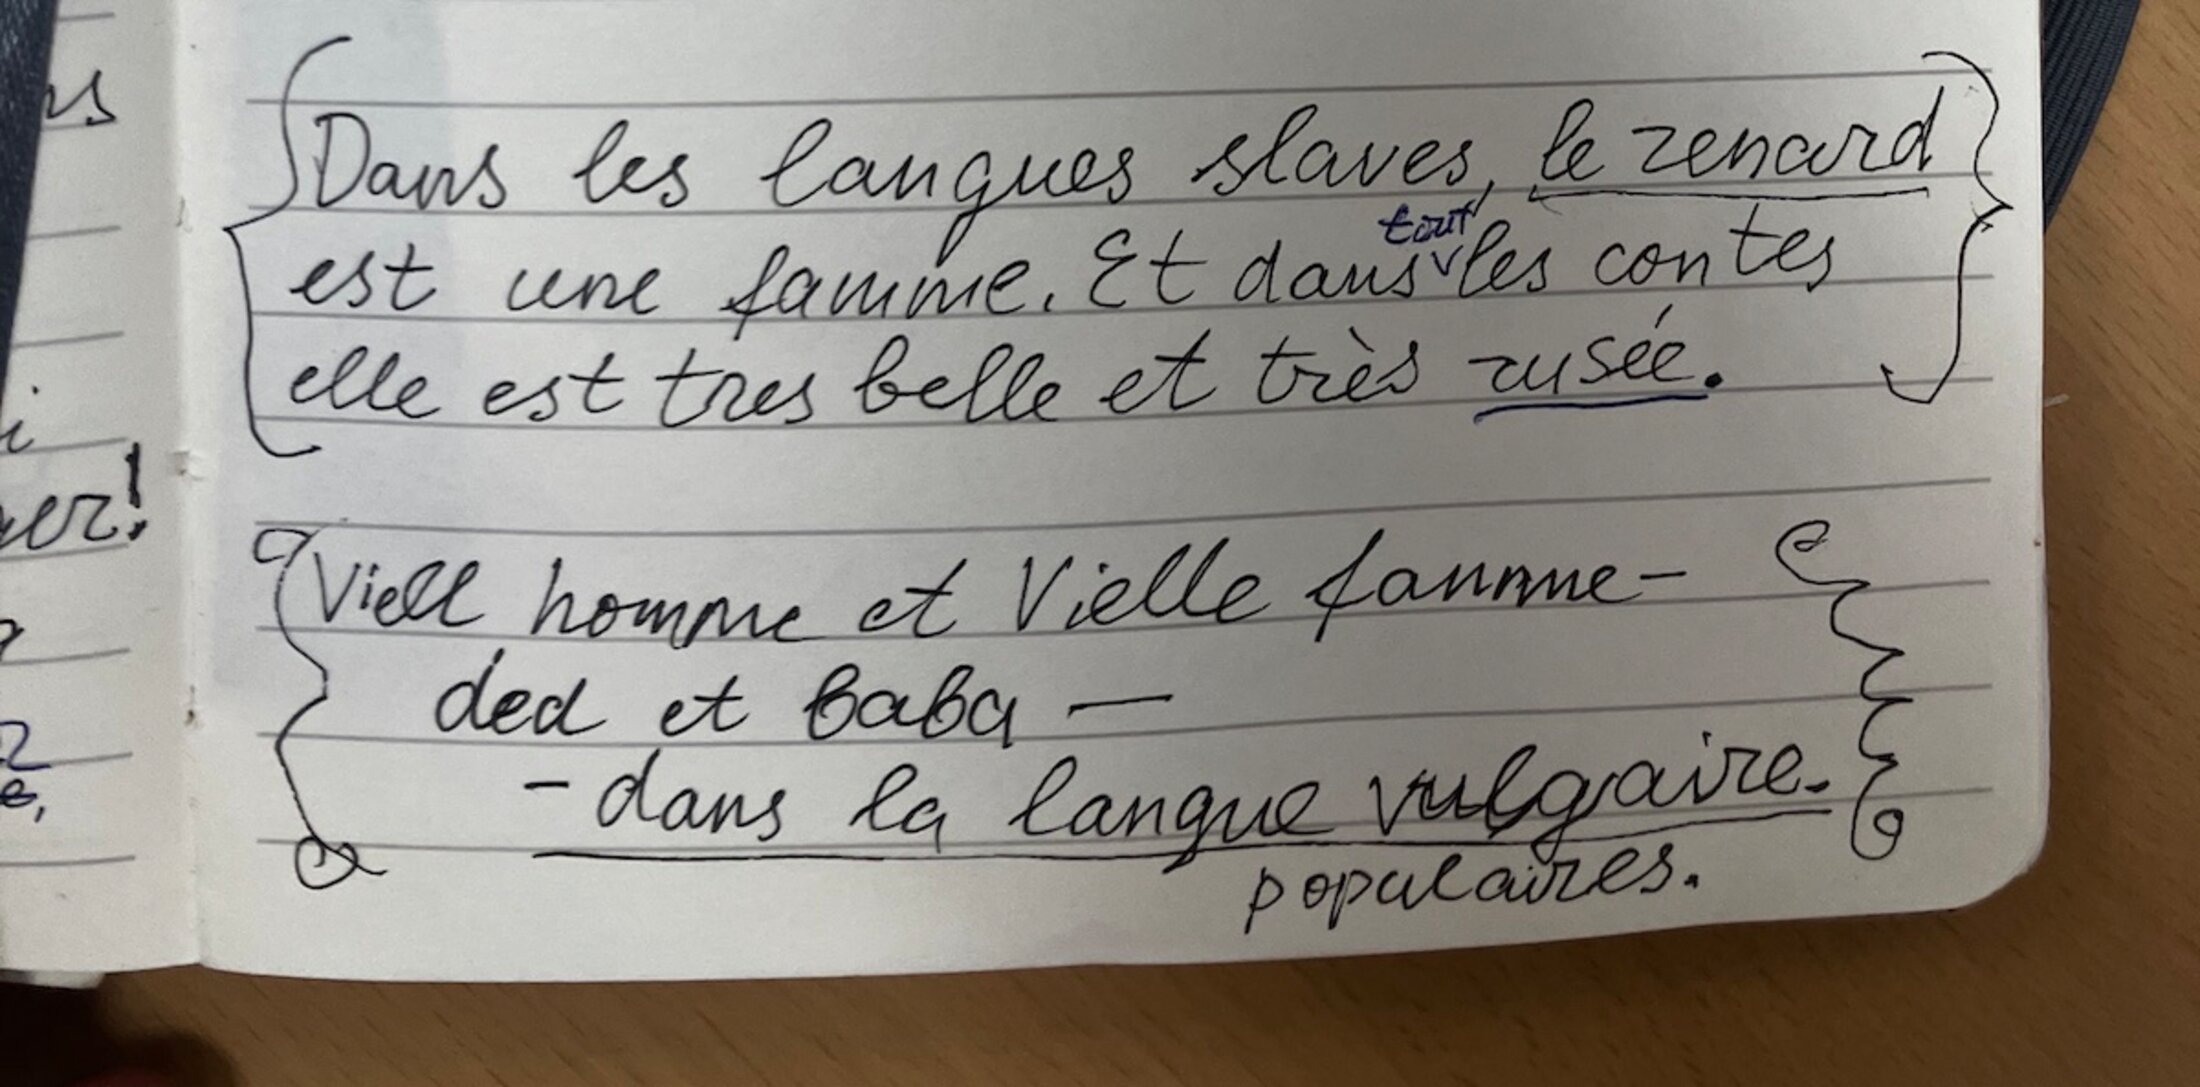 Dans les langues slaves, le renard
est une famme. Et dans tout les contes
elle est tres belle et très rusée.
Viell homme et Vielle famme -
ded et baba —
- dans la langue vulgaire.
populaires.